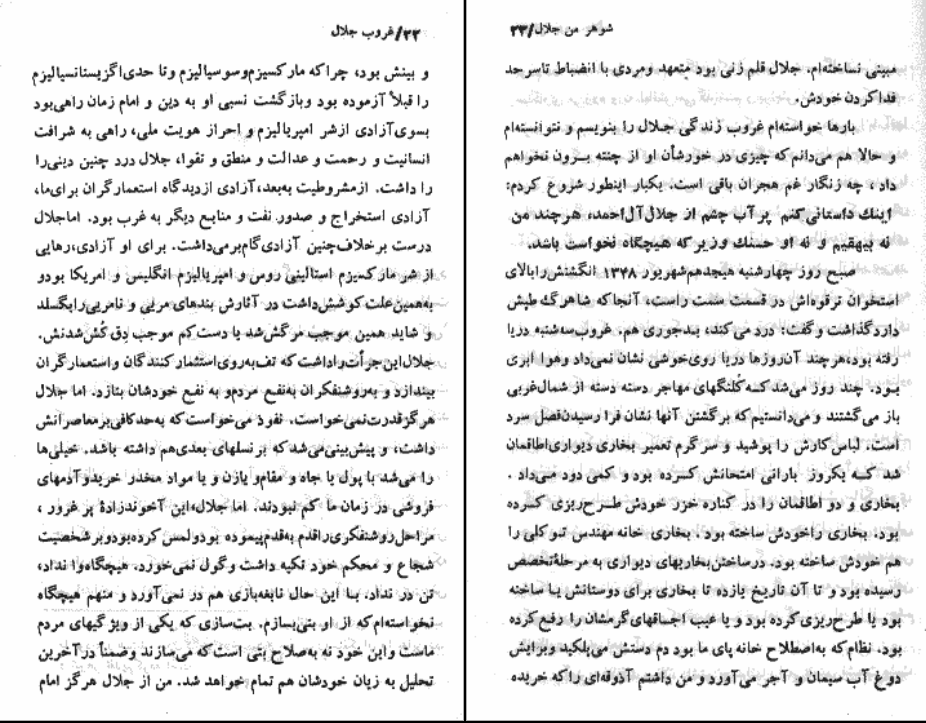 ۲۲/غروب جلال
و بینش بود، چرا که مارکسیزم و سوسیالیزم و تا حدی اگزیستانسیالیزم
را قبلاً آزموده بود و بازگشت نسبی او به دین و امام زمان راهی بود
بسوی آزادی از شر امپریالیزم و احراز هویت ملی، راهی به شرافت
انسانیت و رحمت و عدالت و منطق و تقوا، جلال درد چنین دینی را
را داشت. از مشروطیت به بعد، آزادی از دیدگاه استعمارگران برای ما،
آزادی استخراج و صدور نفت و منابع دیگر به غرب بود. اما جلال
درست بر خلاف چنین آزادی گام برمی‌داشت. برای او آزادی، رهایی
از شر مارکسیزم استالینی روس و امپریالیزم انگلیس و امریکا بود و
به همین علت کوشش داشت در آثارش بندهای مریی و نامریی را بگسلد
و شاید همین موجب مرگش شد یا دست کم موجب دق کُش شدنش.
جلال این جرأت را داشت که تف به روی استثمار کنندگان و استعمارگران
بیندازد و به روشنفکران به نفع مردم و به نفع خودشان بتازد. اما جلال
هرگز قدرت نمی‌خواست. نفوذ می‌خواست که به حد کافی بر معاصرانش
داشت، و پیش‌بینی می‌شد که بر نسلهای بعدی هم داشته باشد. خیلی‌ها
را می‌شد با پول یا جاه و مقام و یا زن و یا مواد مخدر خرید و آدمهای
فروشی در زمان ما کم نبودند. اما جلال، این آخوندزادهٔ پر غرور،
مراحل روشنفکری را قدم به قدم پیموده بود و لمس کرده بود و بر شخصیت
شجاع و محکم خود تکیه داشت و گول نمی‌خورد. هیچگاه وا نداد،
تن در نداد، بـا این حال نابغه‌بازی هم در نمی‌آورد و منهم هیچگاه
نخواسته‌ام که از او بتی بسازم. بت‌سازی که یکی از ویژگیهای مردم
ماست و این خود نه به صلاح بتی است که می‌سازند و ضمناً در آخرین
تحلیل به زیان خودشان هم تمام خواهد شد. من از جلال هرگز امام
شوهر من جلال/۲۳
مبینی نساخته‌ام. جلال قلم زنی بود متعهد و مردی با انضباط تا سر حد
فدا کردن خودش.
بارها خواسته‌ام غروب زندگی جلال را بنویسم و نتوانسته‌ام
و حالا هم می‌دانم که چیزی در خورشأن او از چنته بـرون نخواهم
داد، چه زنگار غم هجران باقی است. یکبار اینطور شروع کردم:
اینك داستانی کنم پر آب چشم از جلال آل‌احمد، هر چند من
نه بیهقیم و نه او حسنك وزیر که هیچگاه نخواست باشد.
صبح روز چهارشنبه هیجدهم شهریور ۱۳۴۸ انگشتش را بالای
استخوان ترقوه‌اش در قسمت سمت راست، آنجا که شاهرگ طپش
دارد گذاشت و گفت: درد می‌کند، بـدجوری هم. غروب سه‌شنبه دریا
رفته بود، هر چند آن روزها دریا روی خوشی نشان نمی‌داد و هوا ابری
بـود. چند روز می‌شد کـه کُلنگهای مهاجر دسته دسته از شمال غربی
باز می‌گشتند و می‌دانستیم که برگشتن آنها نشان فرا رسیدن فصل سرد
است. لباس کارش را پوشید و سرگرم تعمیر بخاری دیواری اطاقمان
شد کـه یکروز بارانی امتحانش کـرده بود و کمی دود می‌داد.
بخاری و دو اطاقمان را در کناره خزر خودش طـرح ریزی کـرده
بود. بخاری را خودش ساخته بود. بخاری خانه مهندس توکلی را
هم خودش ساخته بود. در ساختن بخاریهای دیواری به مرحلهٔ تخصص
رسیده بود و تا آن تاریخ یازده تا بخاری برای دوستانش یا ساخته
بود یا طرح‌ریزی کرده بود و یا عیب اجاقهای گرمشان را رفع کرده
بود. نظام که به‌اصطلاح خانه پای ما بود دم دستش می‌پلکید و برایش
دوغ آب سیمان و آجر می‌آورد و من داشتم آذوقه‌ای را که خریده